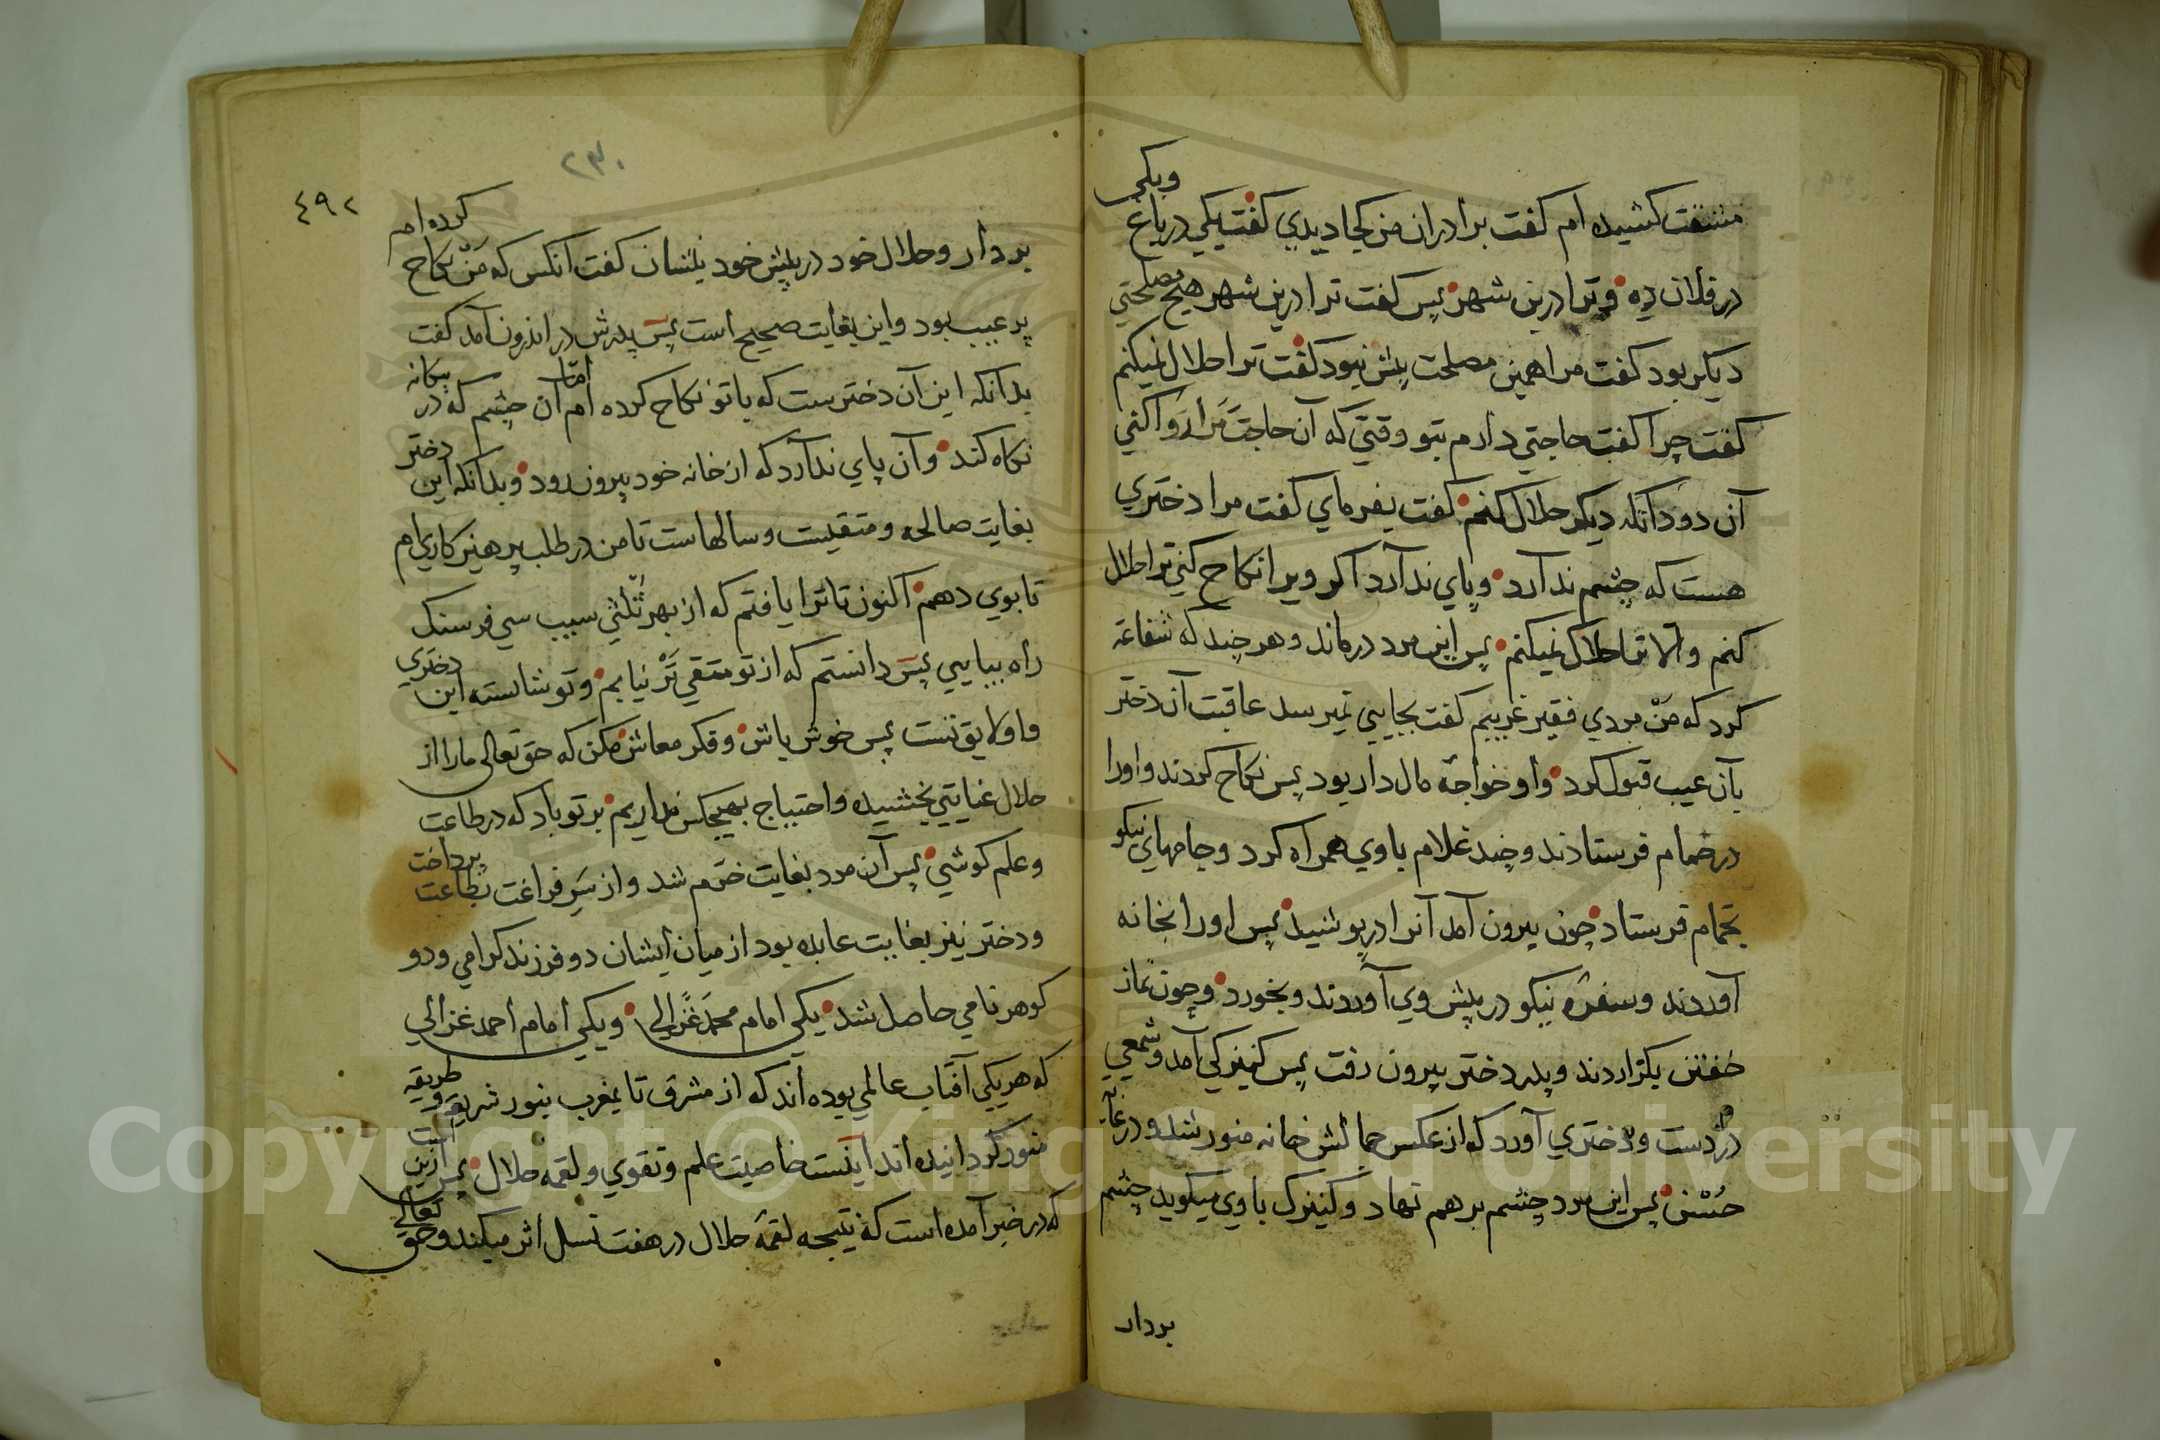 مشقت کشیده ام کفت برادران من کجا دیدي کفت یکي در باغ ویکی
در فلان ده و ترا درین شهر پس کفت ترا درین شهر هیچ مصلحتي
دیکر بود کفت مرا همین مصلحت پیش نبود کفت ترا حلال نمیکنم
کفت چرا کفت حاجتي دارم بتو وقتي که آن حاجت مرا روا کني
آن دو دانکه دیکر حلال کنم کفت بفرماي کفت مرا دختري
هست که چشم ندارد وپاي ندارد اکر ویرا نکاح کني ترا حلال
کنم والا ترا حلال نمیکنم پس این مرد درماند وهر چند که شفاعة
کرد که من مردي فقیر غریبم کفت بجایي نمیرسد عاقبت آن دختر
بآن عیب قبول کرد واو خواجه مال دار بود پس نکاح کردند واورا
در حمام فرستادند وچند غلام باوي همراه کرد وجامهاي نیکو
بحمام فرستاد چون بیرون آمد آنرا درپوشید پس اورا بخانه
آوردند وسفره نیکو در پیش وي آوردند وبخورد وچون نماز
خفتن بکزاردند وپدر دختر بیرون رفت پس کنیزکي آمد وشمعي
در دست ودختري آورد که از عکس جمالش خانه منور شد ودر غایه
حسن پس این مرد چشم برهم نهاد وکنیزک باوي میکوید چشم
بردار
٢٣٠
٤٩٢
بردار وحلال خود در پیش خود بنشان کفت آنکس که من نکاح کرده ام
پر عیب بود واین بغایت صحیح است پس پدرش در اندرون آمد کفت
بدانکه این آن دخترست که باتو نکاح کرده ام اما آن چشم که در بیکانه
نکاه کند وآن پاي ندارد که از خانه خود بیرون رود وبدانکه این دختر
بغایت صالحه ومتقیست وسالهاست تا من در طلب پرهیزکاري ام
تا بوي دهم اکنون تا ترا یافتم که از بهر ثلثي سیب سي فرسنک
راه بیایي پس دانستم که از تو متقي تر نیابم وتو شایسته این دختري
واو لایق تست پس خوش باش وفکر معاش مکن که حق تعالی مارا از
حلال غنایتي بخشیده واحتیاج بهیچکس نداریم بر تو باد که در طاعت
وعلم کوشي پس آن مرد بغایت خرم شد واز سر فراغت بطاعت پرداخت
ودختر نیز بغایت عابده بود از میان ایشان دو فرزند کرامي ودو
کوهر نامي حاصل شد یکي امام محمد غزالي ویکي امام أحمد غزالي
که هر یکي آفتاب عالمي بوده اند که از مشرق تا بمغرب بنور شریعة وطریقه
منور کردانیده اند اینست خاصیت علم وتقوي ولقمه حلال پس ازین است
که در خبر آمده است که نتیجه لقمه حلال در هفت نسل اثر میکند وحق تعالی
Copyright © King Saud University